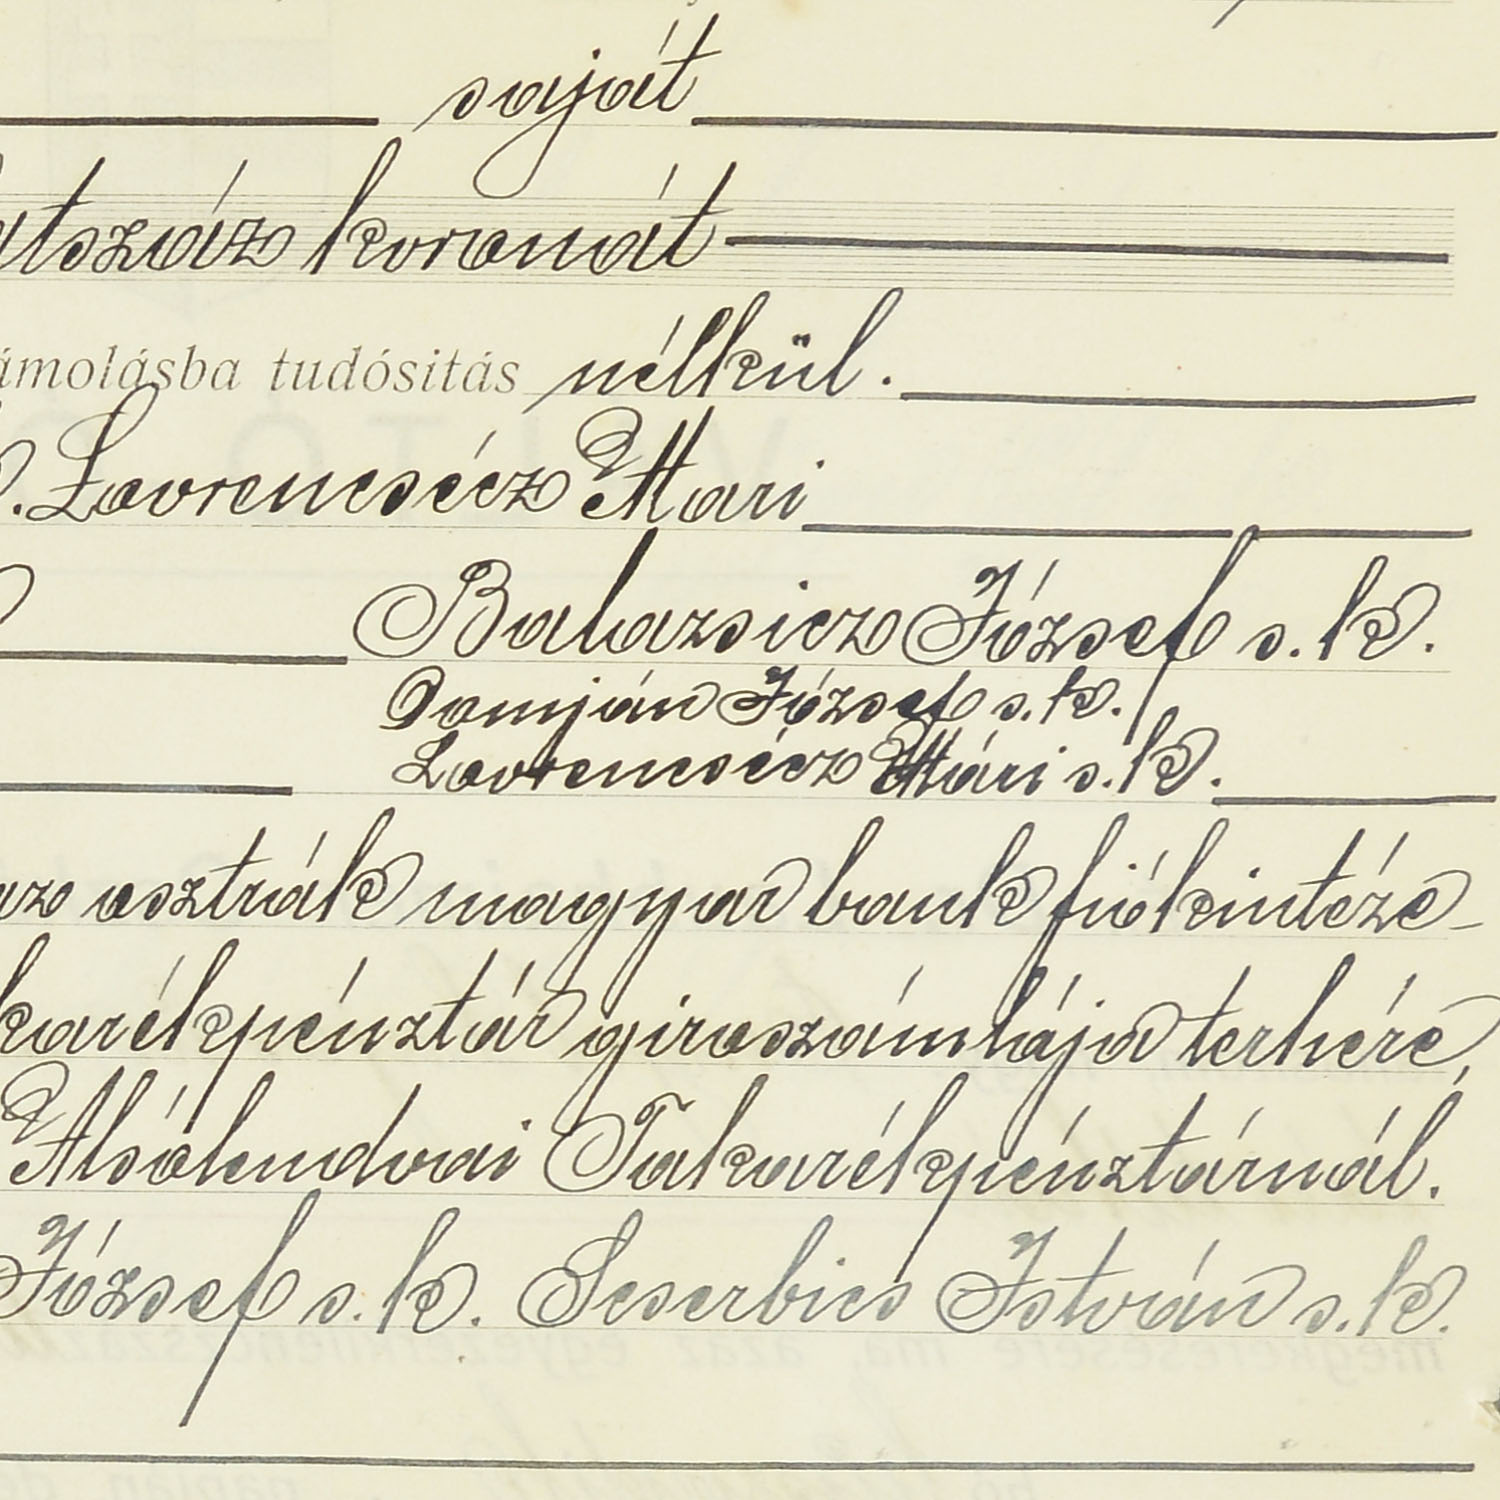 saját
atszáz koronát
ámolásba tudósitás nélkül.
. Lovrencsécz Mari
Balazsicz József s. k.
Domján József s. k.
Lovrencsécz Mári s. k.
az osztrák magyar bank fiókintéze-
karékpénztár giroszámlája terhére,
Alsólendvai Takarékpénztárnál.
József s. k. Scserbics István s. k.